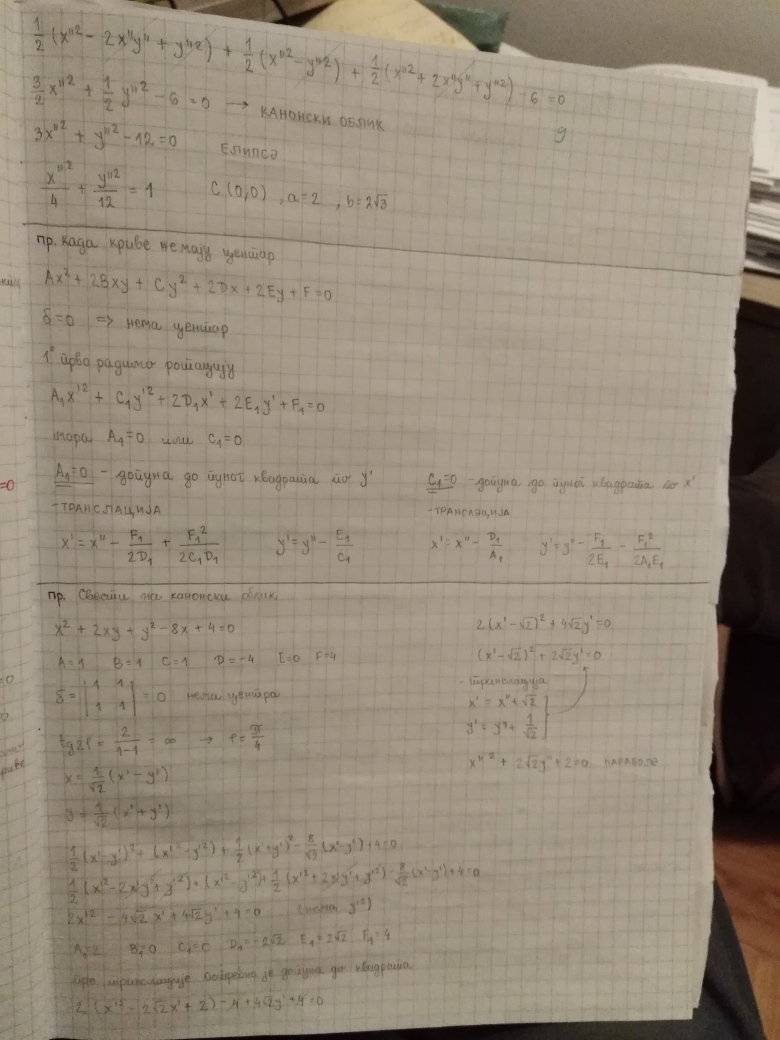 1/2 (x''² - 2x''y'' + y''²) + 1/2 (x''² - y''²) + 1/2 (x''² + 2x''y'' + y''²) - 6 = 0
3/2 x''² + 1/2 y''² - 6 = 0 → КАНОНСКИ ОБЛИК
9
3x''² + y''² - 12 = 0 ЕЛИПСА
x''²/4 + y''²/12 = 1 C(0,0), a=2, b=2√3
пр. Када криве немају центар
Ax² + 2Bxy + Cy² + 2Dx + 2Ey + F = 0
δ=0 => нема центар
1° прво радимо ротацију
A₁x'² + C₁y'² + 2D₁x' + 2E₁y' + F₁ = 0
мора A₁=0 или C₁=0
A₁=0 - допуна до пуног квадрата по y'
-ТРАНСЛАЦИЈА
x' = x'' - F₁/2D₁ + F₁²/2C₁D₁ y' = y'' - E₁/C₁
C₁=0 - допуна до пуног квадрата по x'
-ТРАНСЛАЦИЈА
x' = x'' - D₁/A₁ y' = y'' - F₁/2E₁ - F₁²/2A₁E₁
пр. Свести на канонски облик
x² + 2xy + y² - 8x + 4 = 0
A=1 B=1 C=1 D=-4 E=0 F=4
δ = |1 1| = 0 нема центра
|1 1|
tg2φ = 2/1-1 = ∞ → φ = π/4
x = 1/√2 (x' - y')
y = 1/√2 (x' + y')
1/2 (x' - y')² + (x'² - y'²) + 1/2 (x' + y')² - 8/√2 (x' - y') + 4 = 0
1/2 (x'² - 2x'y' + y'²) + (x'² - y'²) + 1/2 (x'² + 2x'y' + y'²) - 8/√2 (x' - y') + 4 = 0
2x'² - 4√2 x' + 4√2 y' + 4 = 0 (нема y'²)
A₁=2 B₁=0 C₁=0 D₁=-2√2 E₁=2√2 F₁=4
транслације потребна је допуна до квадрата
2 (x'² - 2√2x' + 2) - 4 + 4√2y' + 4 = 0
2(x' - √2)² + 4√2y' = 0
(x' - √2)² + 2√2y' = 0
- транслација
x' = x'' + √2
y' = y'' + 1/√2
x''² + 2√2y'' + 2 = 0 ПАРАБОЛА